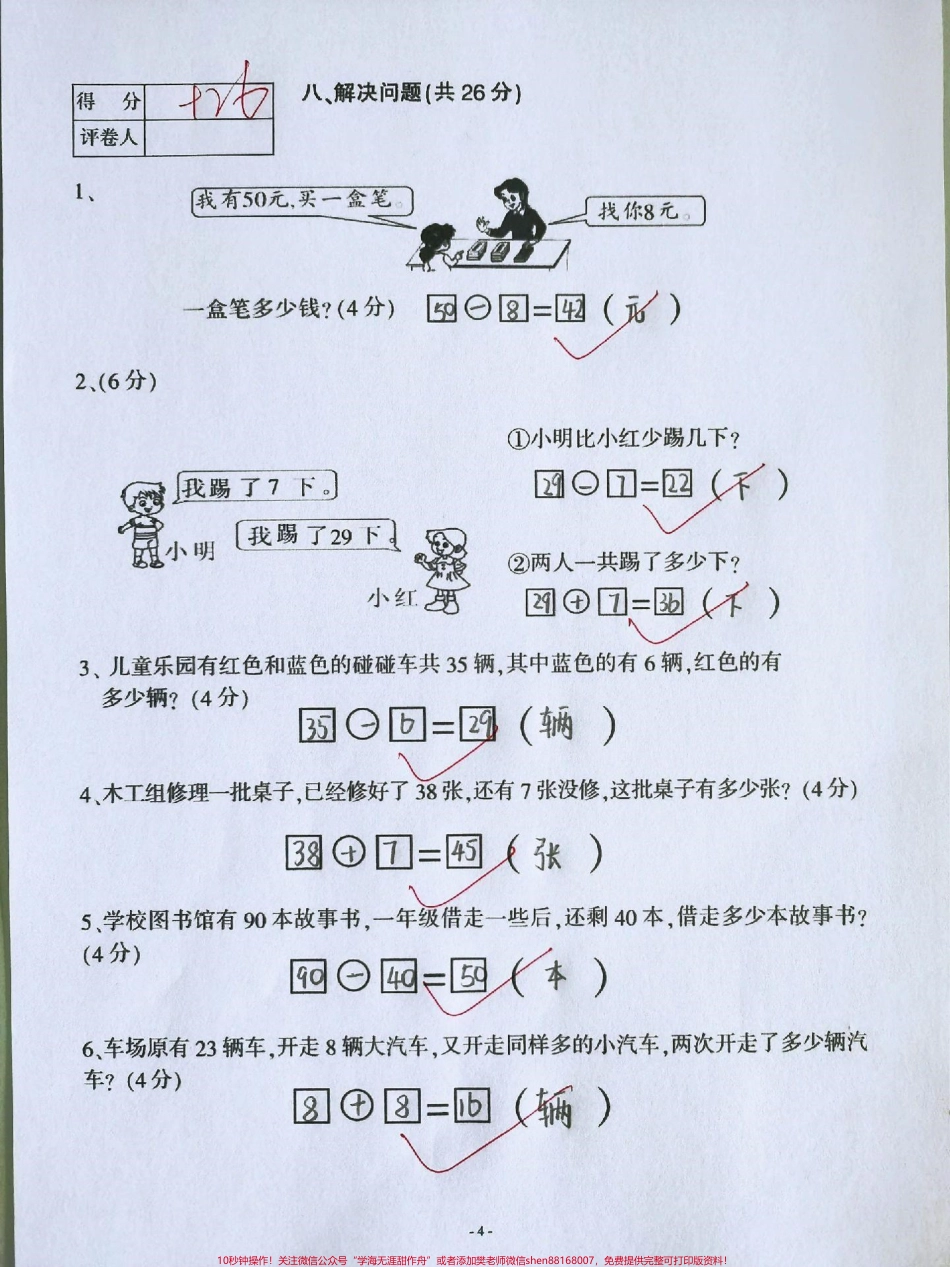 得 分 +26
评卷人
八、解决问题(共26分)
1、
我有50元,买一盒笔。
找你8元。
一盒笔多少钱?(4分) 50-8=42(元)
2、(6分)
①小明比小红少踢几下?
29-7=22(下)
我踢了7下。
小明
我踢了29下。
小红
②两人一共踢了多少下?
29+7=36(下)
3、儿童乐园有红色和蓝色的碰碰车共35辆,其中蓝色的有6辆,红色的有
多少辆?(4分)
35-6=29(辆)
4、木工组修理一批桌子,已经修好了38张,还有7张没修,这批桌子有多少张?(4分)
38+7=45(张)
5、学校图书馆有90本故事书,一年级借走一些后,还剩40本,借走多少本故事书?
(4分)
90-40=50(本)
6、车场原有23辆车,开走8辆大汽车,又开走同样多的小汽车,两次开走了多少辆汽
车?(4分)
8+8=16(辆)
-4-
10秒钟操作!关注微信公众号“学海无涯甜作舟”或者添加樊老师微信shen88168007,免费提供完整可打印版资料!